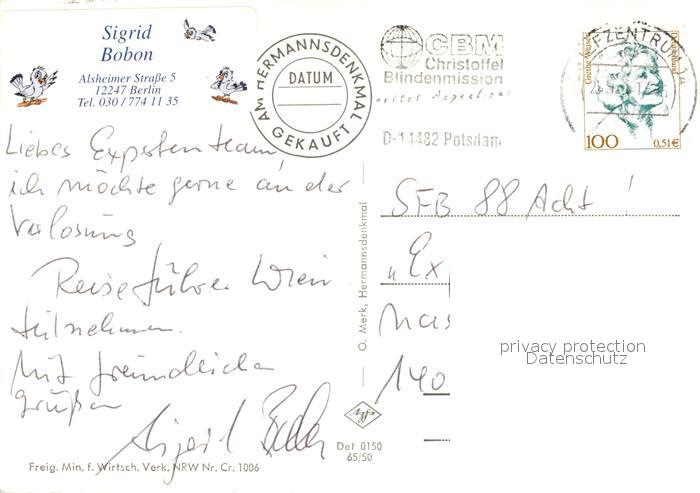 Sigrid
Bobon
Alsheimer Straße 5
12247 Berlin
Tel. 030 / 774 11 35
AM HERMANNSDENKMAL
DATUM
GEKAUFT
CBM
Christoffel
Blindenmission
D-14482 Potsdam
Grethe Weiser
Deutschland
100
0,51€
Liebes Expertenteam,
ich möchte gerne an der
Verlosung
Reiseführer Wien
teilnehmen.
Mit freundlichen
Grüßen
Sigrid
SFB 88 Acht!
„Ex
Mas
140
O. Merk, Hermannsdenkmal
privacy protection
Datenschutz
Agfa
Det 0150
65/50
Freig. Min. f. Wirtsch. Verk. NRW Nr. Cr. 1006